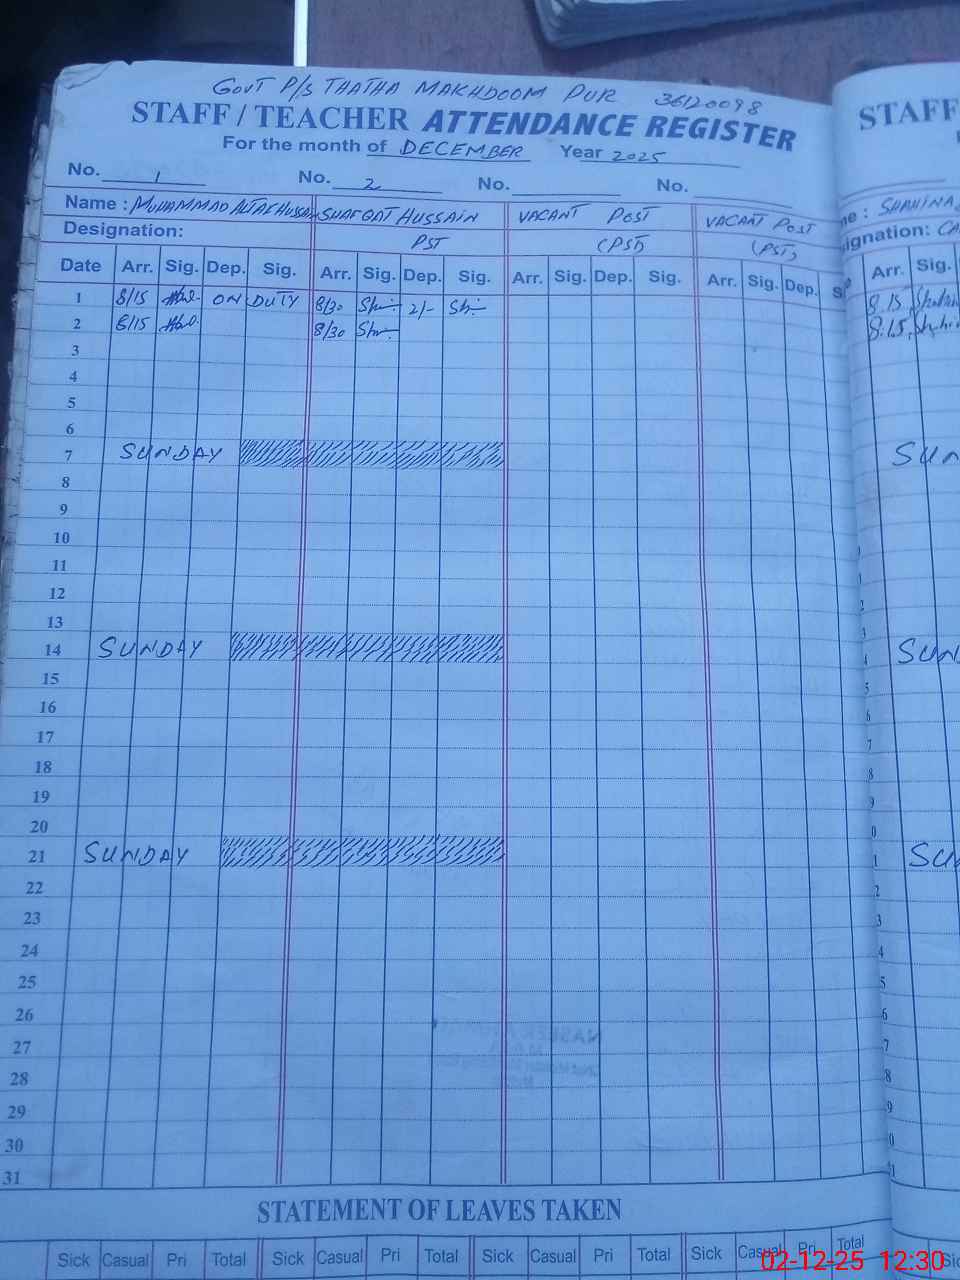 GOVT P/S THATHA MAKHDOOM PUR 36120098
STAFF / TEACHER ATTENDANCE REGISTER
For the month of DECEMBER Year 2025
No. 1 No. 2 No. No.
Name : MUHAMMAD ALTAF HUSSAIN SHAFQAT HUSSAIN VACANT POST VACANT POST
Designation: PST (PST) (PST)
Date Arr. Sig. Dep. Sig. Arr. Sig. Dep. Sig. Arr. Sig. Dep. Sig. Arr. Sig. Dep. S
1 8/15 ON DUTY 8/30 2/-
2 8/15 8/30
3
4
5
6
7 SUNDAY
8
9
10
11
12
13
14 SUNDAY
15
16
17
18
19
20
21 SUNDAY
22
23
24
25
26
27
28
29
30
31
STATEMENT OF LEAVES TAKEN
Sick Casual Pri Total Sick Casual Pri Total Sick Casual Pri Total Sick Casual Pri Total
STAFF
me : SHAHINA
signation: CA
Arr. Sig.
8.15
8:15
SUN
SUN
SU
02-12-25 12:30